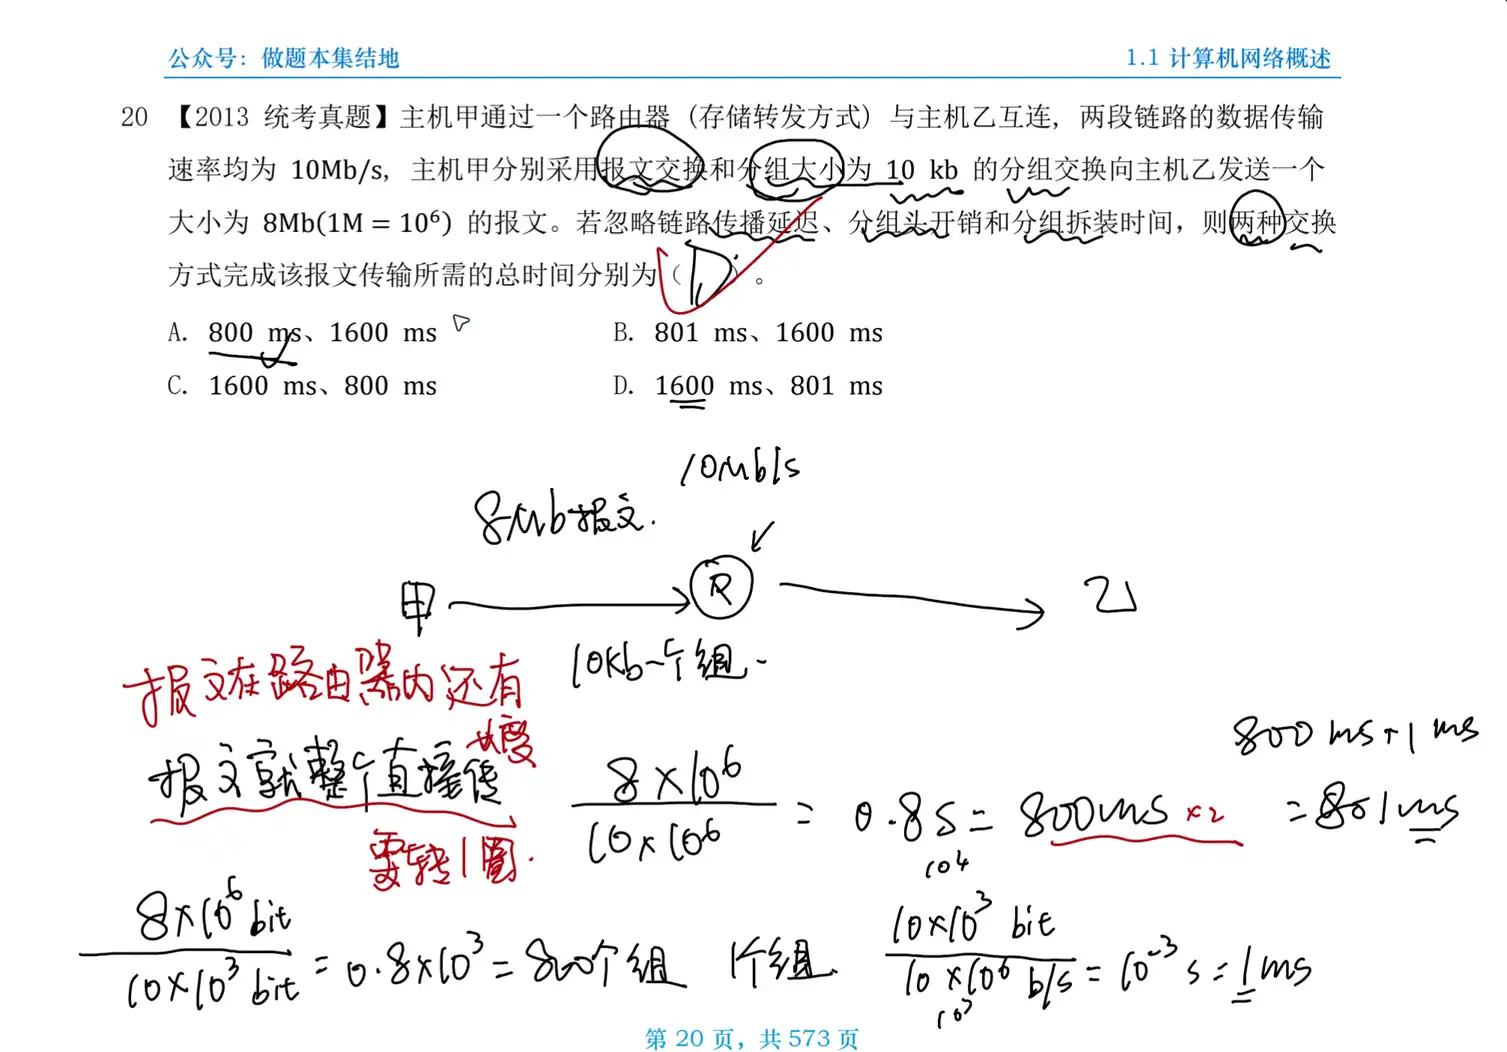 公众号：做题本集结地
1.1 计算机网络概述
20 【2013 统考真题】主机甲通过一个路由器（存储转发方式）与主机乙互连，两段链路的数据传输
速率均为 10Mb/s，主机甲分别采用报文交换和分组大小为 10 kb 的分组交换向主机乙发送一个
大小为 8Mb(1M = 10⁶) 的报文。若忽略链路传播延迟、分组头开销和分组拆装时间，则两种交换
方式完成该报文传输所需的总时间分别为（ D ）。
A. 800 ms、1600 ms
B. 801 ms、1600 ms
C. 1600 ms、800 ms
D. 1600 ms、801 ms
10Mb/s
8Mb报文.
甲
R
乙
10Kb一个组.
报文在路由器内还有
报文就整个直接传
要转1圈.
8×10⁶ / 10×10⁶ = 0.8s = 800ms ×2
800ms+1ms
=801ms
8×10⁶bit / 10×10³bit = 0.8×10³ = 800个组
1个组.
10⁴
10×10³ bit / 10×10⁶ b/s = 10⁻³ s = 1ms
10³
第 20 页，共 573 页